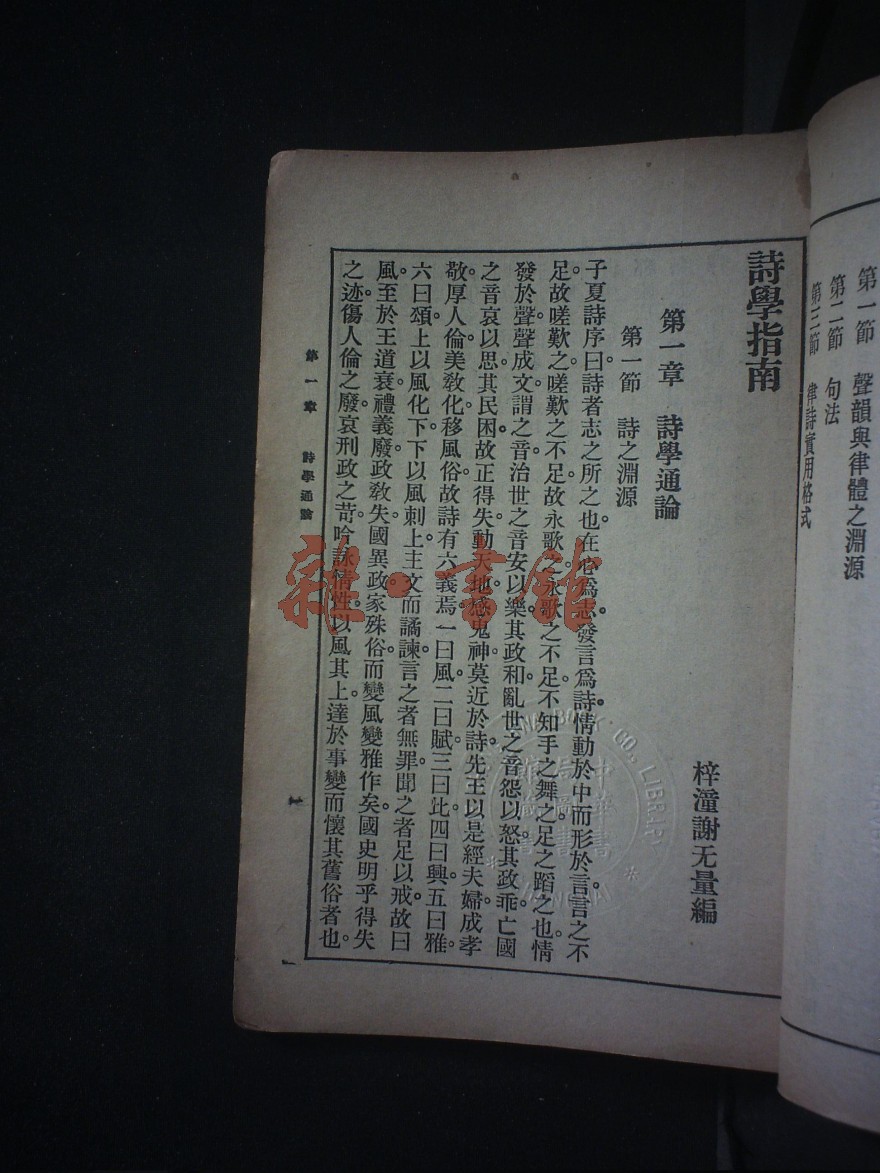 第一節　聲韻與律體之淵源
第二節　句法
第三節　律詩實用格式
詩學指南
梓潼謝无量編
第一章　詩學通論
第一節　詩之淵源
子夏詩序曰詩者志之所之也。在心爲志。發言爲詩。情動於中而形於言。言之不
足。故嗟歎之。嗟歎之不足。故永歌之。永歌之不足。不知手之舞之足之蹈之也。情
發於聲。聲成文謂之音。治世之音安以樂。其政和。亂世之音怨以怒。其政乖。亡國
之音哀以思。其民困。故正得失。動天地。感鬼神。莫近於詩。先王以是經夫婦。成孝
敬。厚人倫。美敎化。移風俗。故詩有六義焉。一曰風。二曰賦。三曰比。四曰興。五曰雅。
六曰頌。上以風化下。下以風刺上。主文而譎諫。言之者無罪。聞之者足以戒。故曰
風。至於王道衰。禮義廢。政敎失。國異政。家殊俗。而變風變雅作矣。國史明乎得失
之迹。傷人倫之廢。哀刑政之苛。吟詠情性。以風其上。達於事變。而懷其舊俗者也。
第一章　詩學通論
一
雜·書館
CO., LIBRARY
中華書
局圖書
館藏書